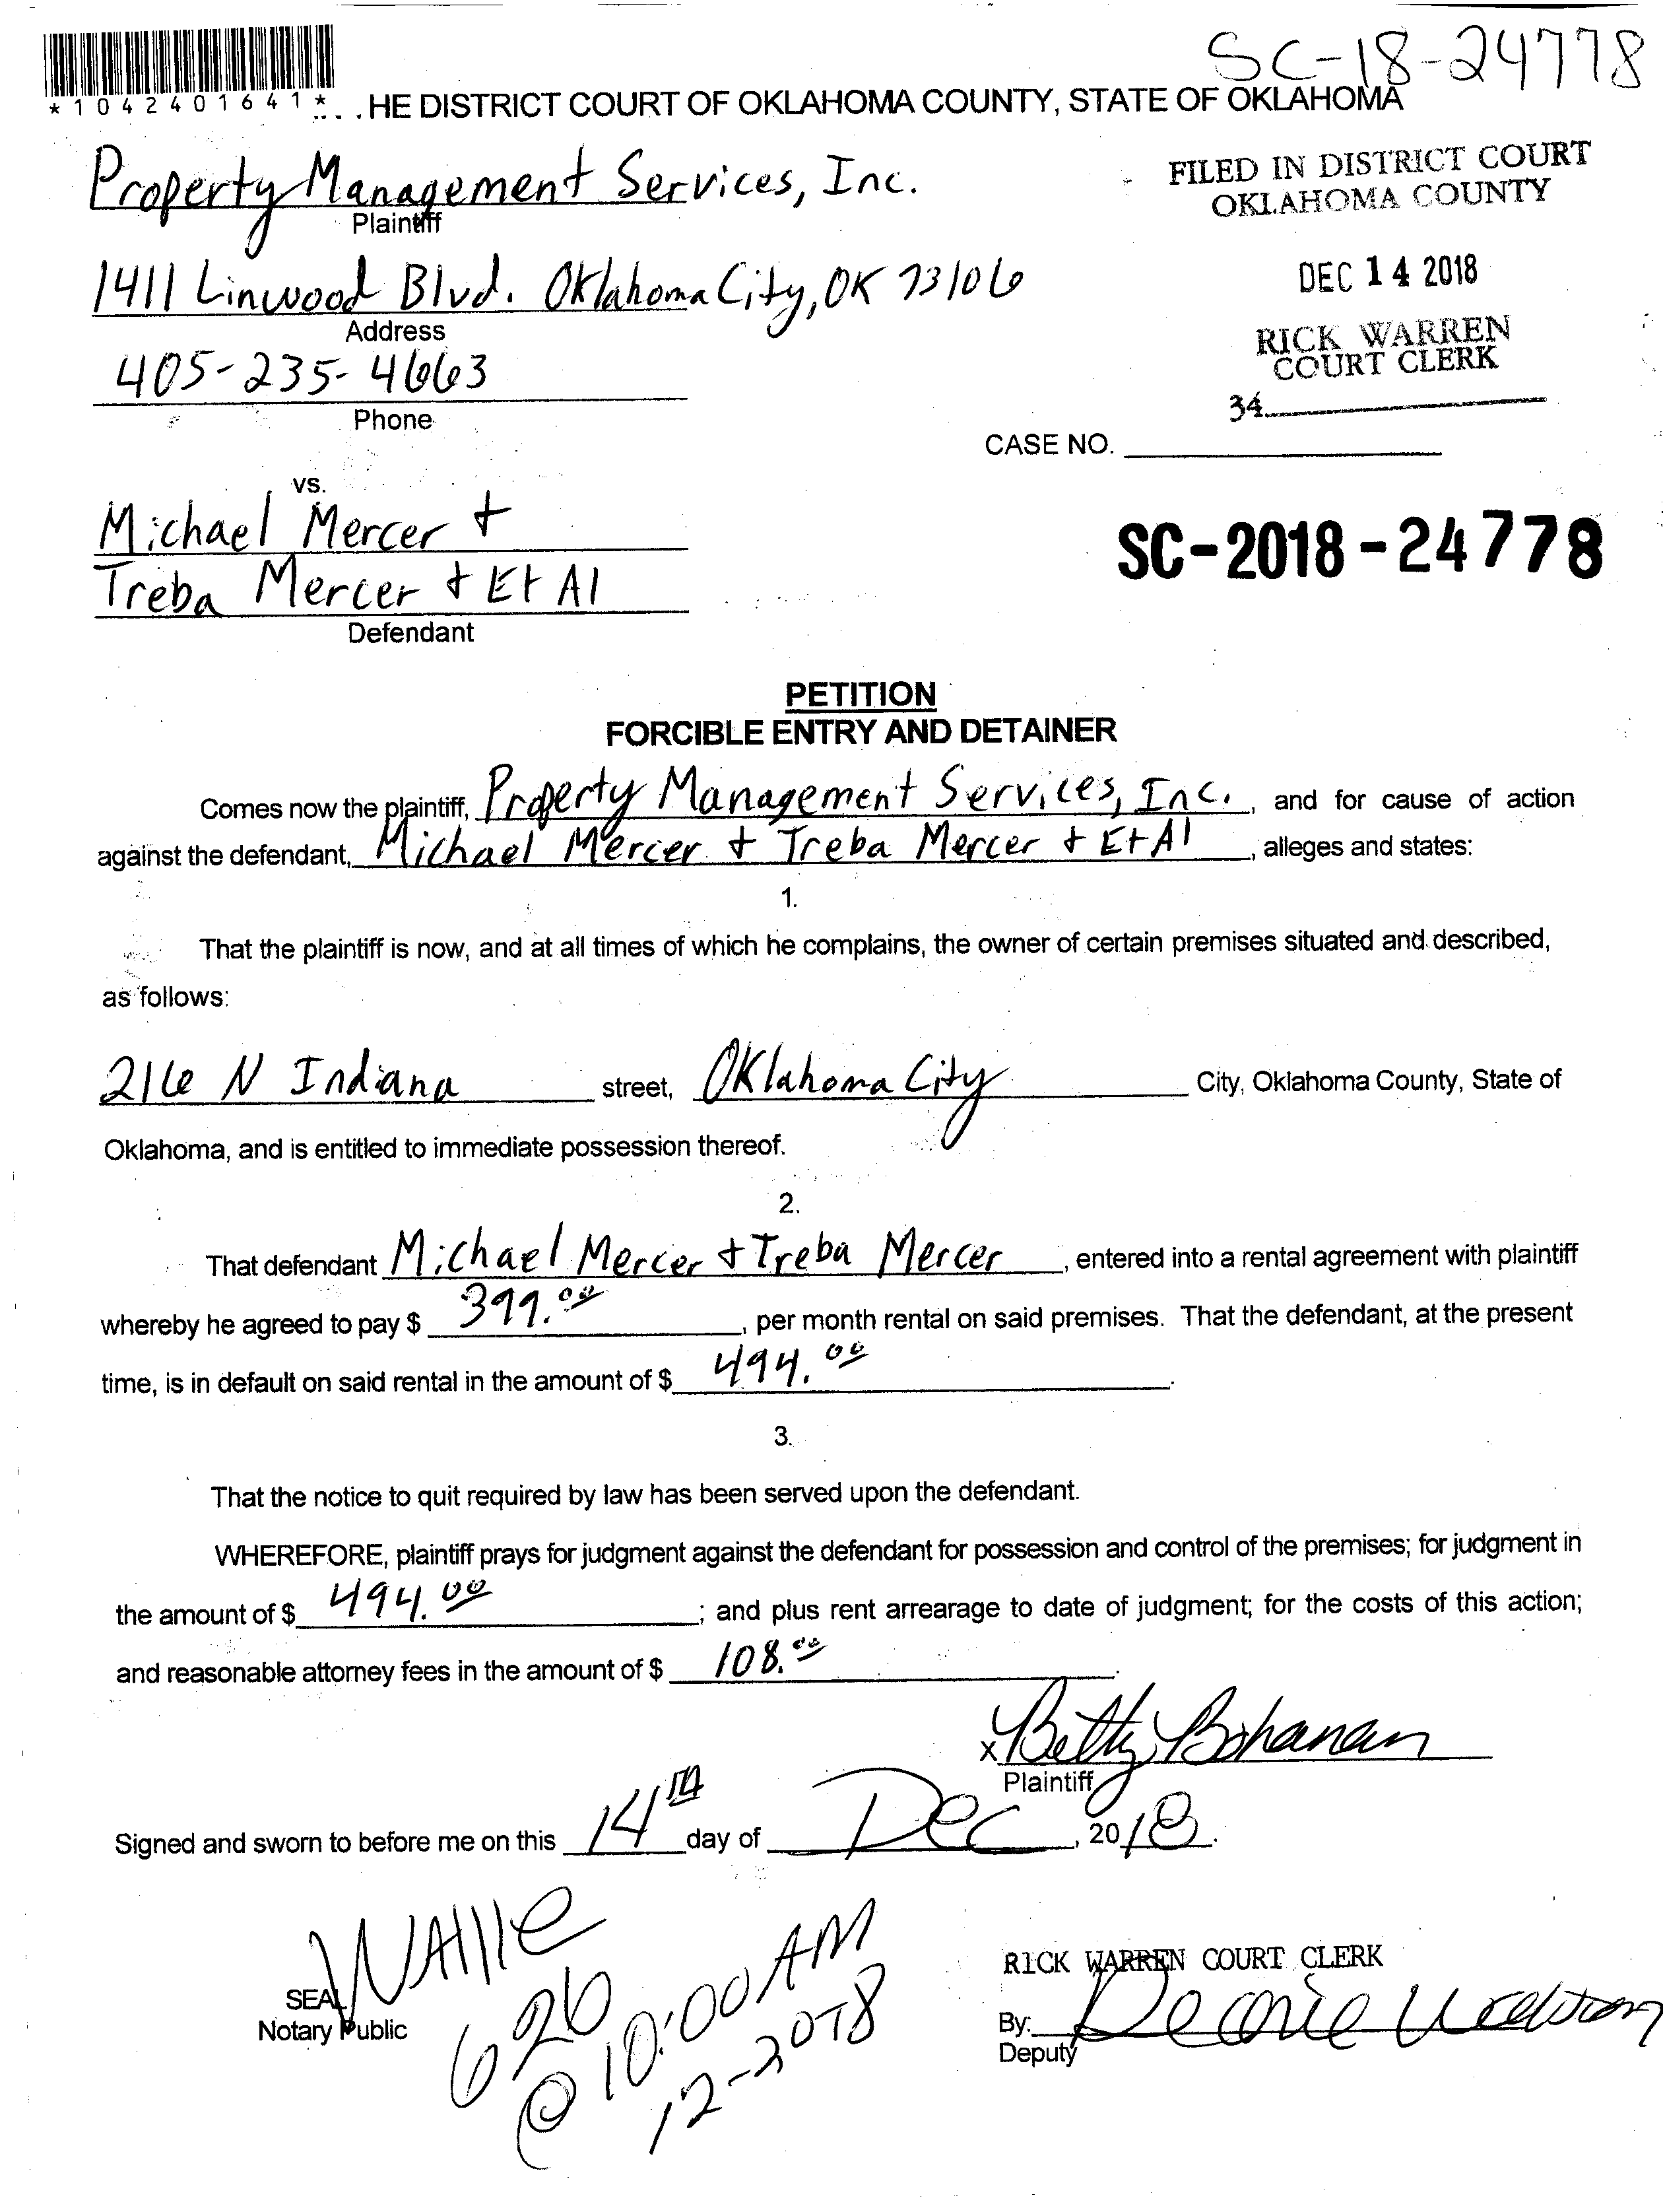 SC-18-24778
*1042401641*
. . . HE DISTRICT COURT OF OKLAHOMA COUNTY, STATE OF OKLAHOMA
Property Management Services, Inc.
Plaintiff
FILED IN DISTRICT COURT
OKLAHOMA COUNTY
1411 Linwood Blvd. Oklahoma City, OK 73106
Address
DEC 14 2018
405-235-4663
Phone
RICK WARREN
COURT CLERK
34
CASE NO.
vs.
Michael Mercer +
Treba Mercer + Et Al
Defendant
SC-2018-24778
PETITION
FORCIBLE ENTRY AND DETAINER
Comes now the plaintiff, Property Management Services, Inc., and for cause of action
against the defendant, Michael Mercer + Treba Mercer + Et Al, alleges and states:
1.
That the plaintiff is now, and at all times of which he complains, the owner of certain premises situated and described,
as follows:
216 N Indiana street, Oklahoma City City, Oklahoma County, State of
Oklahoma, and is entitled to immediate possession thereof.
2.
That defendant Michael Mercer + Treba Mercer, entered into a rental agreement with plaintiff
whereby he agreed to pay $ 399.00, per month rental on said premises. That the defendant, at the present
time, is in default on said rental in the amount of $ 494.00.
3.
That the notice to quit required by law has been served upon the defendant.
WHEREFORE, plaintiff prays for judgment against the defendant for possession and control of the premises; for judgment in
the amount of $ 494.00; and plus rent arrearage to date of judgment; for the costs of this action;
and reasonable attorney fees in the amount of $ 108.00.
x Betty Bohanan
Plaintiff
Signed and sworn to before me on this 14th day of Dec, 2018.
WAlle
SEAL
Notary Public
626
@ 10:00 AM
12-2018
RICK WARREN COURT CLERK
By:
Deputy